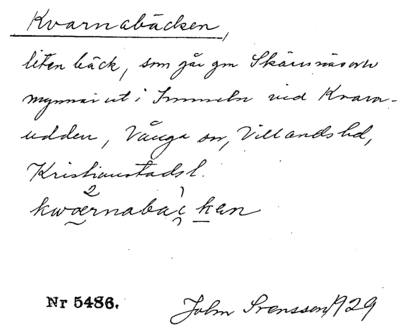 Kvarnabäcken,
liten bäck, som går gm Skärsnäs och
mynnar ut i Immeln vid Kvarn-
udden, Vånga sn, Villands hd,
Kristianstads l.
kwærnabäkan
Nr 5486.
John Svensson 1929